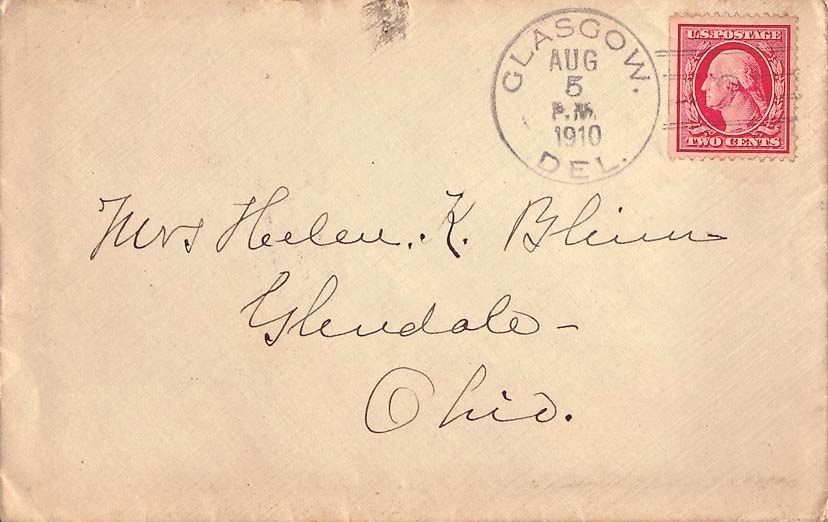 GLASGOW.
AUG
5
P.M.
1910
DEL.
U.S. POSTAGE
TWO CENTS
Mrs Helen. K. Blinn
Glendale-
Ohio.